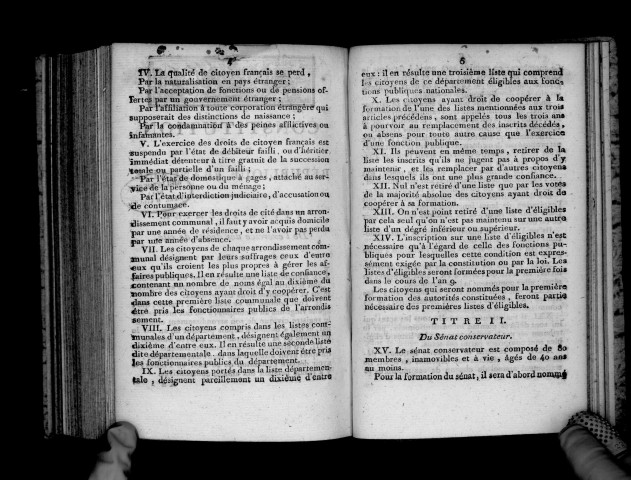 4
IV. La qualité de citoyen français se perd,
Par la naturalisation en pays étranger;
Par l'acceptation de fonctions ou de pensions of-
fertes par un gouvernement étranger;
Par l'affiliation à toute corporation étrangère qui
supposerait des distinctions de naissance;
Par la condamnation à des peines afflictives ou
infamantes.
V. L'exercice des droits de citoyen français est
suspendu par l'état de débiteur failli, ou d'héritier
immédiat détenteur à titre gratuit de la succession
totale ou partielle d'un failli;
Par l'état de domestique à gages, attaché au ser-
vice de la personne ou du ménage;
Par l'état d'interdiction judiciaire, d'accusation ou
de contumace.
VI. Pour exercer les droits de cité dans un arron-
dissement communal, il faut y avoir acquis domicile
par une année de résidence, et ne l'avoir pas perdu
par une année d'absence.
VII. Les citoyens de chaque arrondissement com-
munal désignent par leurs suffrages ceux d'entre
eux qu'ils croient les plus propres à gérer les af-
faires publiques. Il en résulte une liste de confiance,
contenant un nombre de noms égal au dixième du
nombre des citoyens ayant droit d'y coopérer. C'est
dans cette première liste communale que doivent
être pris les fonctionnaires publics de l'arrondis
sement.
VIII. Les citoyens compris dans les listes com-
munales d'un département, désignent également un
dixième d'entre eux. Il en résulte une seconde liste
dite départementale, dans laquelle doivent être pris
les fonctionnaires publics du département.
IX. Les citoyens portés dans la liste départemen-
tale, désignent pareillement un dixième d'entre
eux: il en résulte une troisième liste qui comprend
les citoyens de ce département éligibles aux fonc-
tions publiques nationales.
X. Les citoyens ayant droit de coopérer à la
formation de l'une des listes mentionnées aux trois
articles précédens, sont appelés tous les trois ans
à pourvoir au remplacement des inscrits décédés,
ou absens pour toute autre cause que l'exercice
d'une fonction publique.
XI. Ils peuvent en même temps, retirer de la
liste les inscrits qu'ils ne jugent pas à propos d'y
maintenir, et les remplacer par d'autres citoyens
dans lesquels ils ont une plus grande confiance.
XII. Nul n'est retiré d'une liste que par les votes
de la majorité absolue des citoyens ayant droit de
coopérer à sa formation.
XIII. On n'est point retiré d'une liste d'éligibles
par cela seul qu'on n'est pas maintenu sur une autre
liste d'un dégré inférieur ou supérieur.
XIV. L'inscription sur une liste d'éligibles n'est
nécessaire qu'à l'égard de celle des fonctions pu-
bliques pour lesquelles cette condition est expres-
sément exigée par la constitution ou par la loi. Les
listes d'éligibles seront formées pour la première fois
dans le cours de l'an 9.
Les citoyens qui seront nommés pour la première
formation des autorités constituées, feront partie
nécessaire des premières listes d'éligibles.
TITRE II.
Du Sénat conservateur.
XV. Le sénat conservateur est composé de 80
membres, inamovibles et à vie, âgés de 40 ans
au moins.
Pour la formation du sénat, il sera d'abord nommé